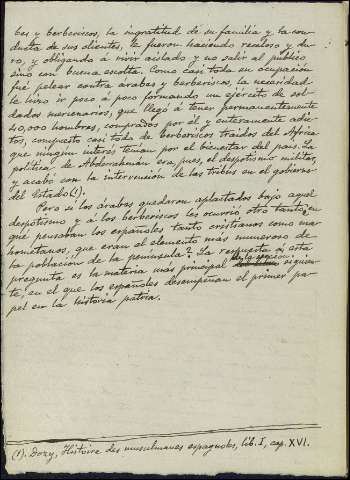 bes y berberiscos, la ingratitud de su familia y la con-
ducta de sus clientes, le fueron haciendo receloso y du-
ro, y obligando á vivir aislado y no salir al público
sino con buena escolta. Como casi toda su ocupación
fué pelear contra árabes y berberiscos, la necesidad
le hizo ir poco á poco formando un ejército de sol-
dados mercenarios, que llegó á tener permanentemente
40,000 hombres, comprados por él y enteramente adic-
tos, compuesto casi todo de berberiscos traidos del Africa
que ningún interés tenían por el bienestar del país. La
política de Abderrahmán era, pues, el despotismo militar,
y acabó con la intervención de las tribus en el gobierno
del Estado (1).
Pero si los árabes quedaron aplastados bajo aquel
despotismo y á los berberiscos les ocurrió otro tanto, ¿en
qué pensaban los españoles tanto cristianos como ma-
hometanos, que eran el elemento más numeroso de
la población de la península? La respuesta á esta
pregunta es la materia más principal de la sección siguien-
te, en el que los españoles desempeñan el primer pa-
pel en la historia patria.
(1). Dozy, Histoire des musulmanes espagnoles, lib. I, cap. XVI.